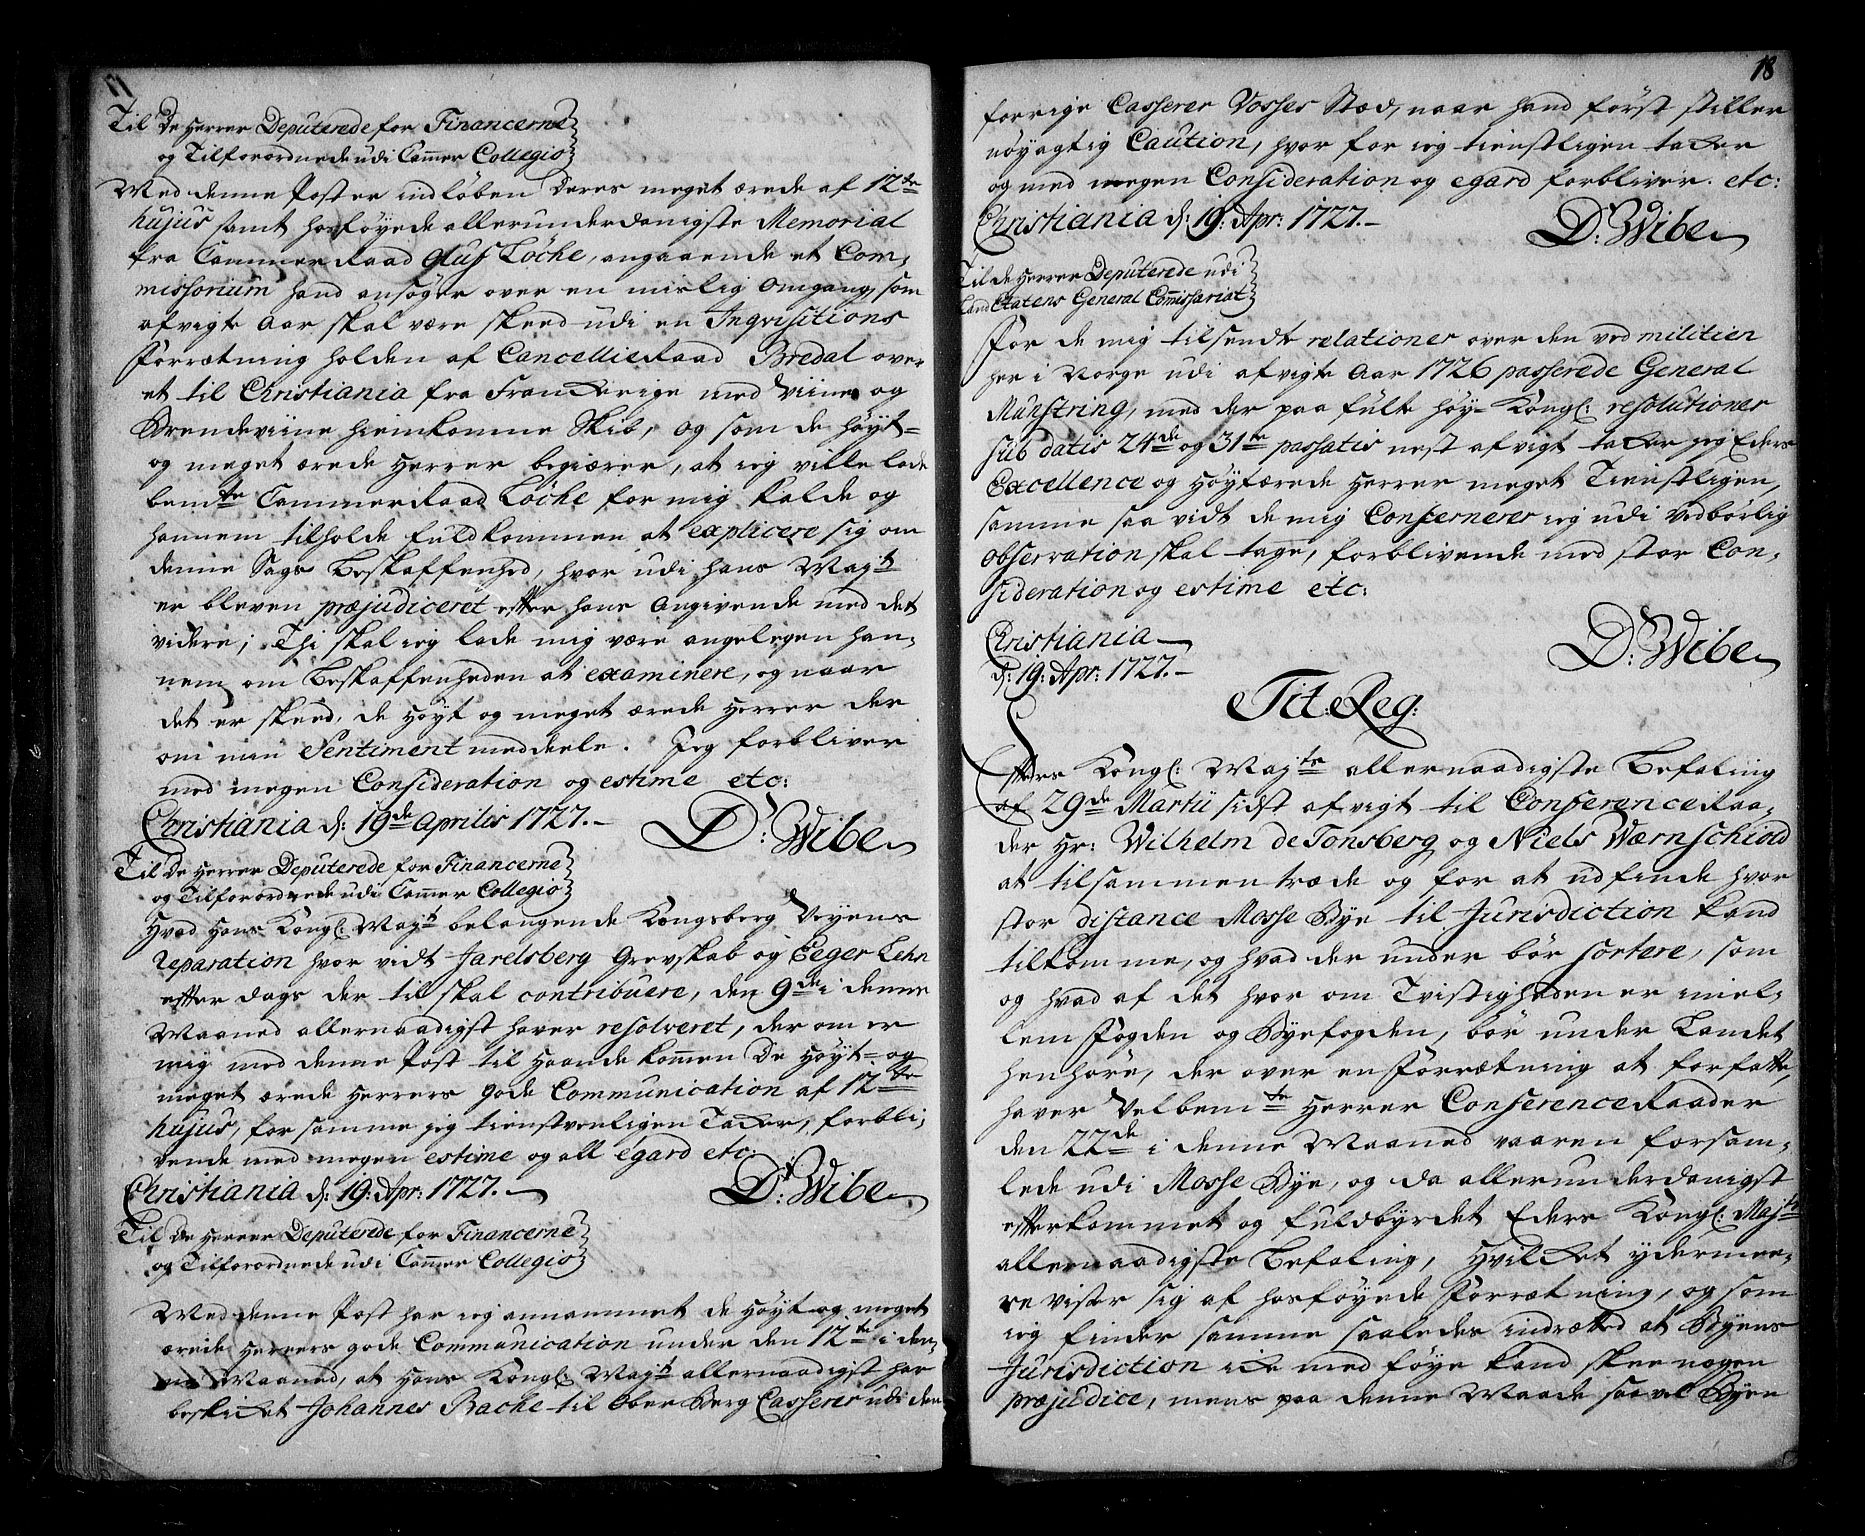 17
Til De Herrer Deputerede for Financerne
og Tilforordnede udi Cammer Collegio
Med denne Post er indløben Deres meget ærede af 12te
hujus samt hosføyede allerunderdanigste Memorial
fra Cammer Raad Oluf Löche, angaaende et Com-
missorium hand ansøger over en mislig Omgang, som
afvigte Aar skal være skeed udi en Inqvisitions
Forrætning holden af Cancellie Raad Bredal over
et til Christiania fra Franckerige med Viine og
Brendeviine hiemkomne Skib, og som de Høyt-
og meget ærede Herrer begiærer, at ieg ville lade
bemte Cammer Raad Löche for mig kalde og
hannem tilholde fuldkommen at explicere sig om
denne Sags Beskaffenhed, hvor udi hans Mayt
er bleven præjudiceret efter hans Angivende med det
videre; Thi skal ieg lade mig være angelegen han-
nem om Beskaffenheden at examinere, og naar
det er skeed, de Høyt og meget ærede Herrer der
om min Sentiment meddeele. Jeg forbliver
med megen Consideration og estime etc:
Christiania d: 19de Aprilis 1727.
D: Wibe
Til De Herrer Deputerede for Financerne
og Tilforordnede udi Cammer Collegio
Hvad Hans Kongl: Mayt belangende Kongsberg Veyens
reparation hvor vidt Jarelsberg Grevskab og Eeger Lehn
efter dags der til skal contribuere, den 9de i denne
Maaned allernaadigst haver resolveret, der om er
mig med denne Post til Haande kommen De Høyt- og
meget ærede Herrers gode Communication af 12te
hujus, for samme jeg tienstvenligen Tacker, forbli-
vende med megen estime og all egard etc:
Christiania d: 19: Apr: 1727.
D: Wibe
Til De Herrer Deputerede for Financerne
og Tilforordnede udi Cammer Collegio
Med denne Post har ieg annammet de Høyt og meget
ærede Herrers gode Communication under den 12te i den-
ne Maaned, at Hans Kongl: Mayt allernaadigst har
beskicket Johannes Bache til Ober Berg Casserer udi den
18
forrige Casserer Vosses Stæd, naar hand først stiller
nøyagtig Caution, hvor for ieg tienstligen tacker
og med megen Consideration og egard forbliver. etc:
Christiania d: 19: Apr: 1727.
D: Wibe
Til de Herrer Deputerede udi
Land Etatens General Comissariat
For de mig tilsendte relationer over den ved militien
her i Norge udi afvigte Aar 1726 passerede General
Mùnstring, med der paa fulte høy-Kongl: resolutioner
sub datis 24de og 31te passatis nest afvigt tacker jeg Eders
Excellence og Høyærede Herrer meget Tienstligen,
samme saa vidt de mig Concernerer ieg udi Vedbørlig
observation skal tage, forblivende med stor Con-
sideration og estime etc:
Christiania
d: 19: Apr: 1727.
D: Wibe
Tit: Reg:
Efter Eders Kongl: Mayts allernaadigste Befaling
af 29de Martii sidst afvigt til Conference Raa-
der Hr: Wilhelm de Tonsberg og Niels Wærnschiold
at tilsammen træde og for at udfinde hvor
stor distance Mosse Bye til Jurisdiction kand
tilkomme, og hvad der under bør sortere, som
og hvad af det hvor om Tvistigheden er imel-
lem Fogden og Byefogden, bør under Landet
henhøre, der over en Forrætning at forfatte,
haver Velbemte Herrer Conference Raader
den 22de i denne Maaned vaaren forsam-
lede udi Mosse Bye, og da allerunderdanigst
efterkommet og fuldbyrdet Eders Kongl: Majts
allernaadigste Befaling, Hvilcket ydermee-
re viser sig af hosføyede Forrætning, og som
ieg finder samme saaledes indrætted at Byens
Jurisdiction icke med føye kand skee nogen
præjudice, mens paa denne Maade saavel Byen